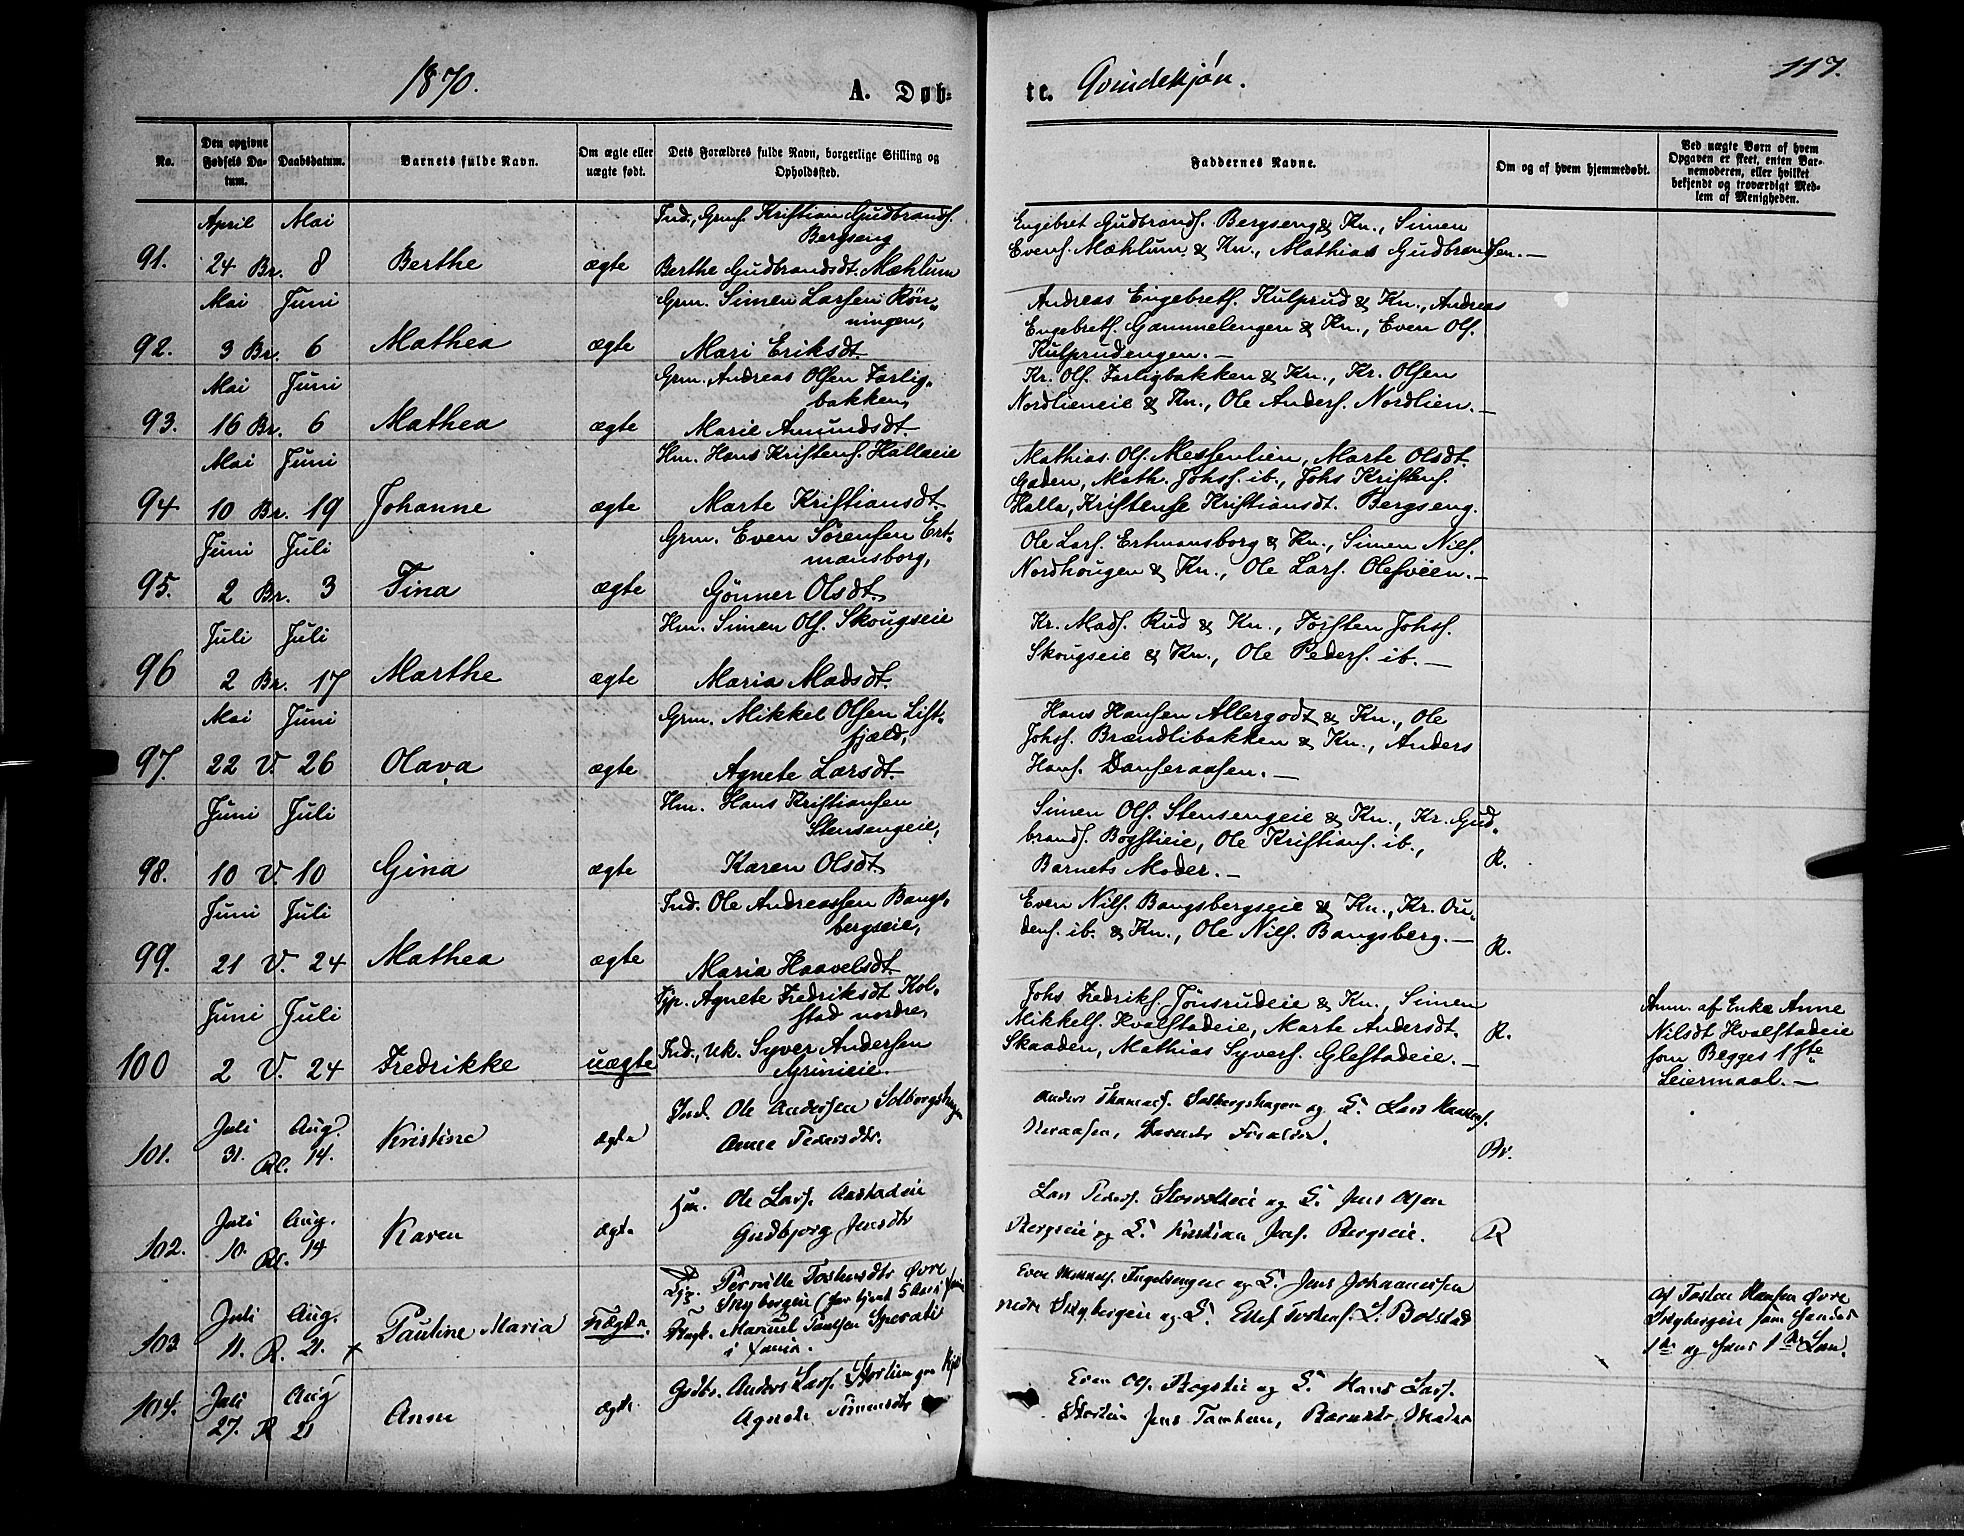 1870.
A. Døb-
te. Qvindekjøn.
117.
No.
Den opgivne Fødsels Da-tum.
Daabsdatum.
Barnets fulde Navn.
Om ægte eller uægte født.
Dets Forældres fulde Navn, borgerlige Stilling og Opholdssted.
Faddernes Navne.
Om og af hvem hjemmedøbt.
Ved uægte Børn af hvem Opgaven er skeet, enten Bar-nemoderen, eller hvilket bekjendt og troværdigt Med-lem af Menigheden.
April Mai
91. 24 Br. 8 Berthe ægte
Ind., Grmf. Kristian Gudbrands.
Bergseng
Berthe Gudbrandsdt. Mæhlum
Engebret Gudbrands. Bergseng & Kn., Simen
Evens. Mæhlum & Kn., Mathias Gudbrandsen.—
Mai Juni
92. 3 Br. 6 Mathea ægte
Grm. Simen Larsen Røn-
ningen,
Mari Eriksdt.
Andreas Engebrets. Kulprud & Kn., Andreas
Engebrets. Gammelengen & Kn., Even Ols.
Kulprudengen.—
Mai Juni
93. 16 Br. 6 Mathea ægte
Grm. Andreas Olsen Farlig-
bakken,
Marie Amundsdt.
Kr. Ols. Farligbakken & Kn., Kr. Olsen
Nordlieneie & Kn., Ole Anders. Nordlien.—
Mai Juni
94 10 Br. 19 Johanne ægte
Hm. Hans Kristens. Hallaeie
Marte Kristiansdt.
Mathias Ols. Messenlien, Marte Olsdt.
Gaden, Math. Johs. ib., Johs Kristens.
Halla, Kristense Kristiansdt. Bergseng.
Juni Juli
95. 2 Br. 3 Tina ægte
Grm. Even Sørensen Ert-
mansborg,
Gønner Olsdt.
Ole Lars. Ertmansborg & Kn., Simen Nils.
Nordhougen & Kn., Ole Lars. Olesveen.—
Juli Juli
96 2 Br. 17 Marthe ægte
Hm. Simen Ols. Skougseie
Maria Madsdt.
Kr. Mads. Rud & Kn., Torsten Johs.
Skougseie & Kn., Ole Peders. ib.—
Mai Juni
97. 22 V. 26 Olava ægte
Grm. Mikkel Olsen List-
fjæld,
Agnete Larsdt.
Hans Hansen Allergodt & Kn., Ole
Johs. Brændlibakken & Kn., Anders
Hans. Danseraasen.—
Juni Juli
98. 10 V. 10 Gina ægte
Hm. Hans Kristiansen
Stensengeie,
Karen Olsdt.
Simen Ols. Stensengeie & Kn., Kr. Gud-
brands. Bogstieie, Ole Kristians. ib.,
Barnets Moder.—
R.
Juni Juli
99. 21 V. 24 Mathea ægte
Ind. Ole Andreassen Bangs-
bergseie,
Maria Haavelsdt.
Even Nils. Bangsbergseie & Kn., Kr. Ou-
dens. ib. & Kn., Ole Nils. Bangsberg.—
R.
Juni Juli
100 2 V. 24 Fredrikke uægte
Tjp. Agnete Fredriksdt Kol-
stad nordre,
Ind., Uk. Syver Andersen
Grinieie.
Johs Fredriks. Jønsrudeie & Kn., Simen
Mikkels. Kvalstadeie, Marte Andersdt.
Skaaden, Mathias Syvers. Glestadeie.—
R.
Anm. af Enke Anne
Nilsdt Hvalstadeie
som Begges 1ste
Leiermaal.—
Juli Aug.
101. 31. Rl. 14. Kristine ægte
Ind. Ole Andersen Solbergshagen
Anne Pedersdtr.
Anders Thomas. Solbergshagen og L. Lars
R.
Juli Aug.
102. 10. Rl. 14 Karen ægte
Hm. Ole Lars. Aastadeie
Gudbjørg Jensdtr
Lars Peders. og L. Jens Olsen
Bergseie og L. Kristian Jens. Bergseie.
R
Juli Aug.
103 11. R. 21. x Pauline Maria Uægte
Tjp. Pernille Tostensdtr Øvre
Skybergeie (har tjent 5 Aar
Ungk. Manuel Paulsen Sperati
Even Engelsengen og L. Jens Johannessen
nedre Skybergeie og L. Ellef Tostens. L. Bolstad
Af Tosten Hansen Øvre
Skybergeie som hendes
1ste og hans 1ste Lm.
Juli Aug
104. 27. R 21 Anne ægte
Gvdbr. Anders Lars.
Agnete Simensdtr
Even Ols. Bogstie og L. Hans Lars.
Jens Barnets Moder